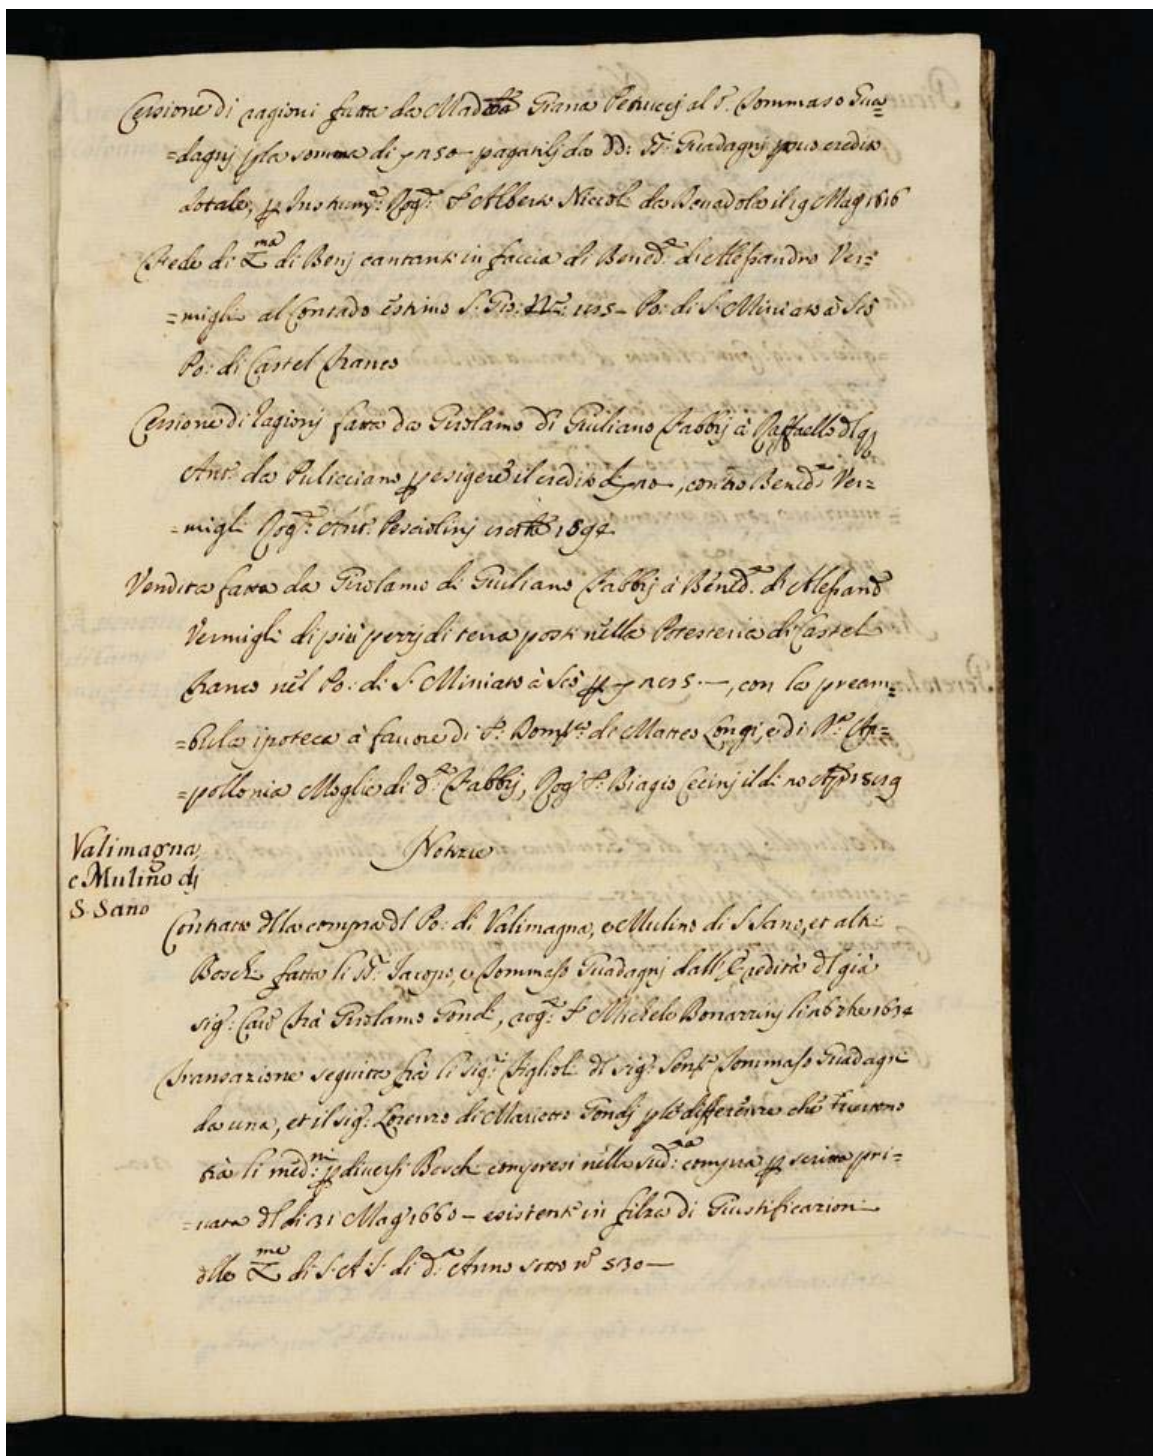 Cessione di ragioni fatta da Mad.a Petruccj al S. Tommaso Gua=
=dagnj p la somma di pagatilj da dd: SS: Guadagnj credito
dotale, p Instrum.to Rog.to S. Alberto Niccol. da il 19 Mag 1616
Fede di X.ma di Benj cantanti in faccia di Bened.o di Alessandro Ver=
=migli al Contado estimo S. Gio: Po: di S. Miniato à Scò
Po: di Castel Franco
Cessione di ragionj fatta da Girolamo di Giuliano Fabbrj à Raffaello dl q
Ant.o da Pulicciano p esigere il credito di contro Bened.o Ver=
=migli Rog.to Ant.o Pesciolinj
Vendita fatta da Girolamo di Giuliano Fabbrj à Bened.o di Alessand.o
Vermigli di più pezzj di terra posti nella Potesteria di Castel
Franco nel Po: di S. Miniato à Scò p con la pream=
=bula ipoteca à favore di S. Dom.co di Matteo Longi, e di M.a Ap=
=pollonia Moglie di d.o Fabbrj, Rog S. Biagio Cecinj il di
Valimagna,
e Mulino dj
S. Sano
Notizie
Contratto dlla compra dl Po: di Valimagna, e Mulino di S. Sano, et altri
Boschi fatta li SS. Jacopo, e Tommaso Guadagnj dall'Eredità dl già
sig: Cav.e Frà Girolamo Gondi, rog.o S. Michele Bonarrinj li 1634
Transazione seguita frà li Sig.i Figlioli dl sig.r Sen.re Tommaso Guadagni
da una, et il sig.r Lorenzo di Mariotto Gondj p le differenze che
trà li med.mi p diversi Boschi compresi nella sud.a compra p scritta pri=
=vata dl di 31 Mag.o 1660 – esistente in filza di Giustificazioni
dlle X.me di S. A. S. di d.o Anno sotto n.o 530 —